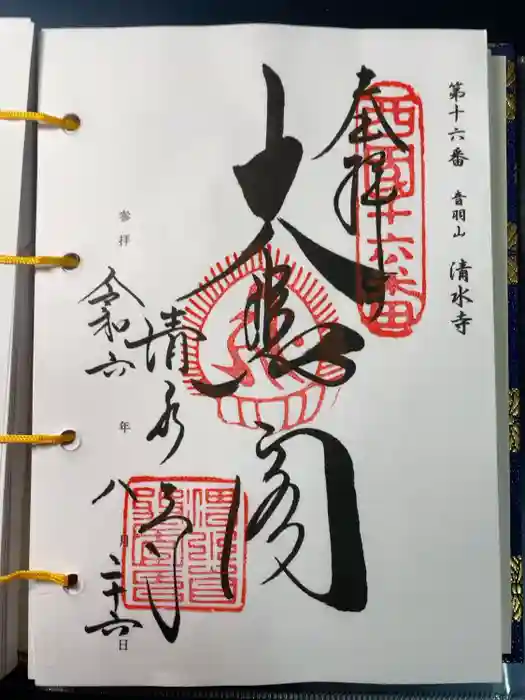 第十六番 音羽山 清水寺
奉拝
西国十六番
大悲閣
清水寺
参拝 令和六年八月二十六日